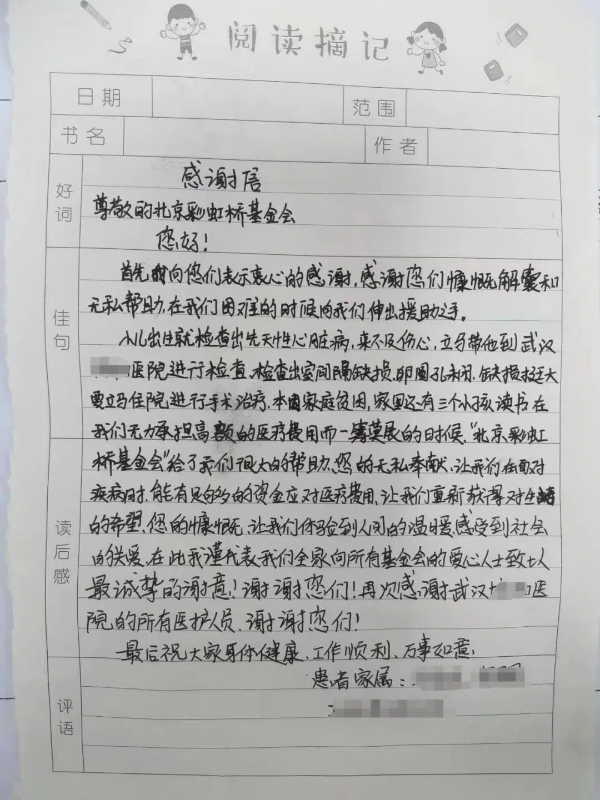 阅读摘记
日期 范围
书名 作者
好词
感谢信
尊敬的北京彩虹桥基金会
您好!
佳句
首先向您们表示衷心的感谢,感谢您们慷慨解囊和
无私帮助,在我们困难的时候向我们伸出援助之手。
小儿出生就检查出先天性心脏病,来不及伤心,立马带他到武汉
医院进行检查,检查出室间隔缺损,卵圆孔未闭,缺损挺大
要立马住院进行手术治疗,本因家庭贫困,家里还有三个小孩读书,在
我们无力承担高额的医疗费用而一筹莫展的时候,"北京彩虹
桥基金会"给了我们很大的帮助,您的无私奉献,让我们在面对
读后感
疾病时,能有足够多的资金应对医疗费用,让我们重新获得对生活
的希望,您的慷慨,让我们体验到人间的温暖,感受到社会
的关爱,在此我谨代表我们全家向所有基金会的爱心人士致以
最诚挚的谢意!谢谢您们!再次感谢武汉 医
院的所有医护人员,谢谢您们!
最后祝大家身体健康、工作顺利、万事如意.
评语
患者家属: